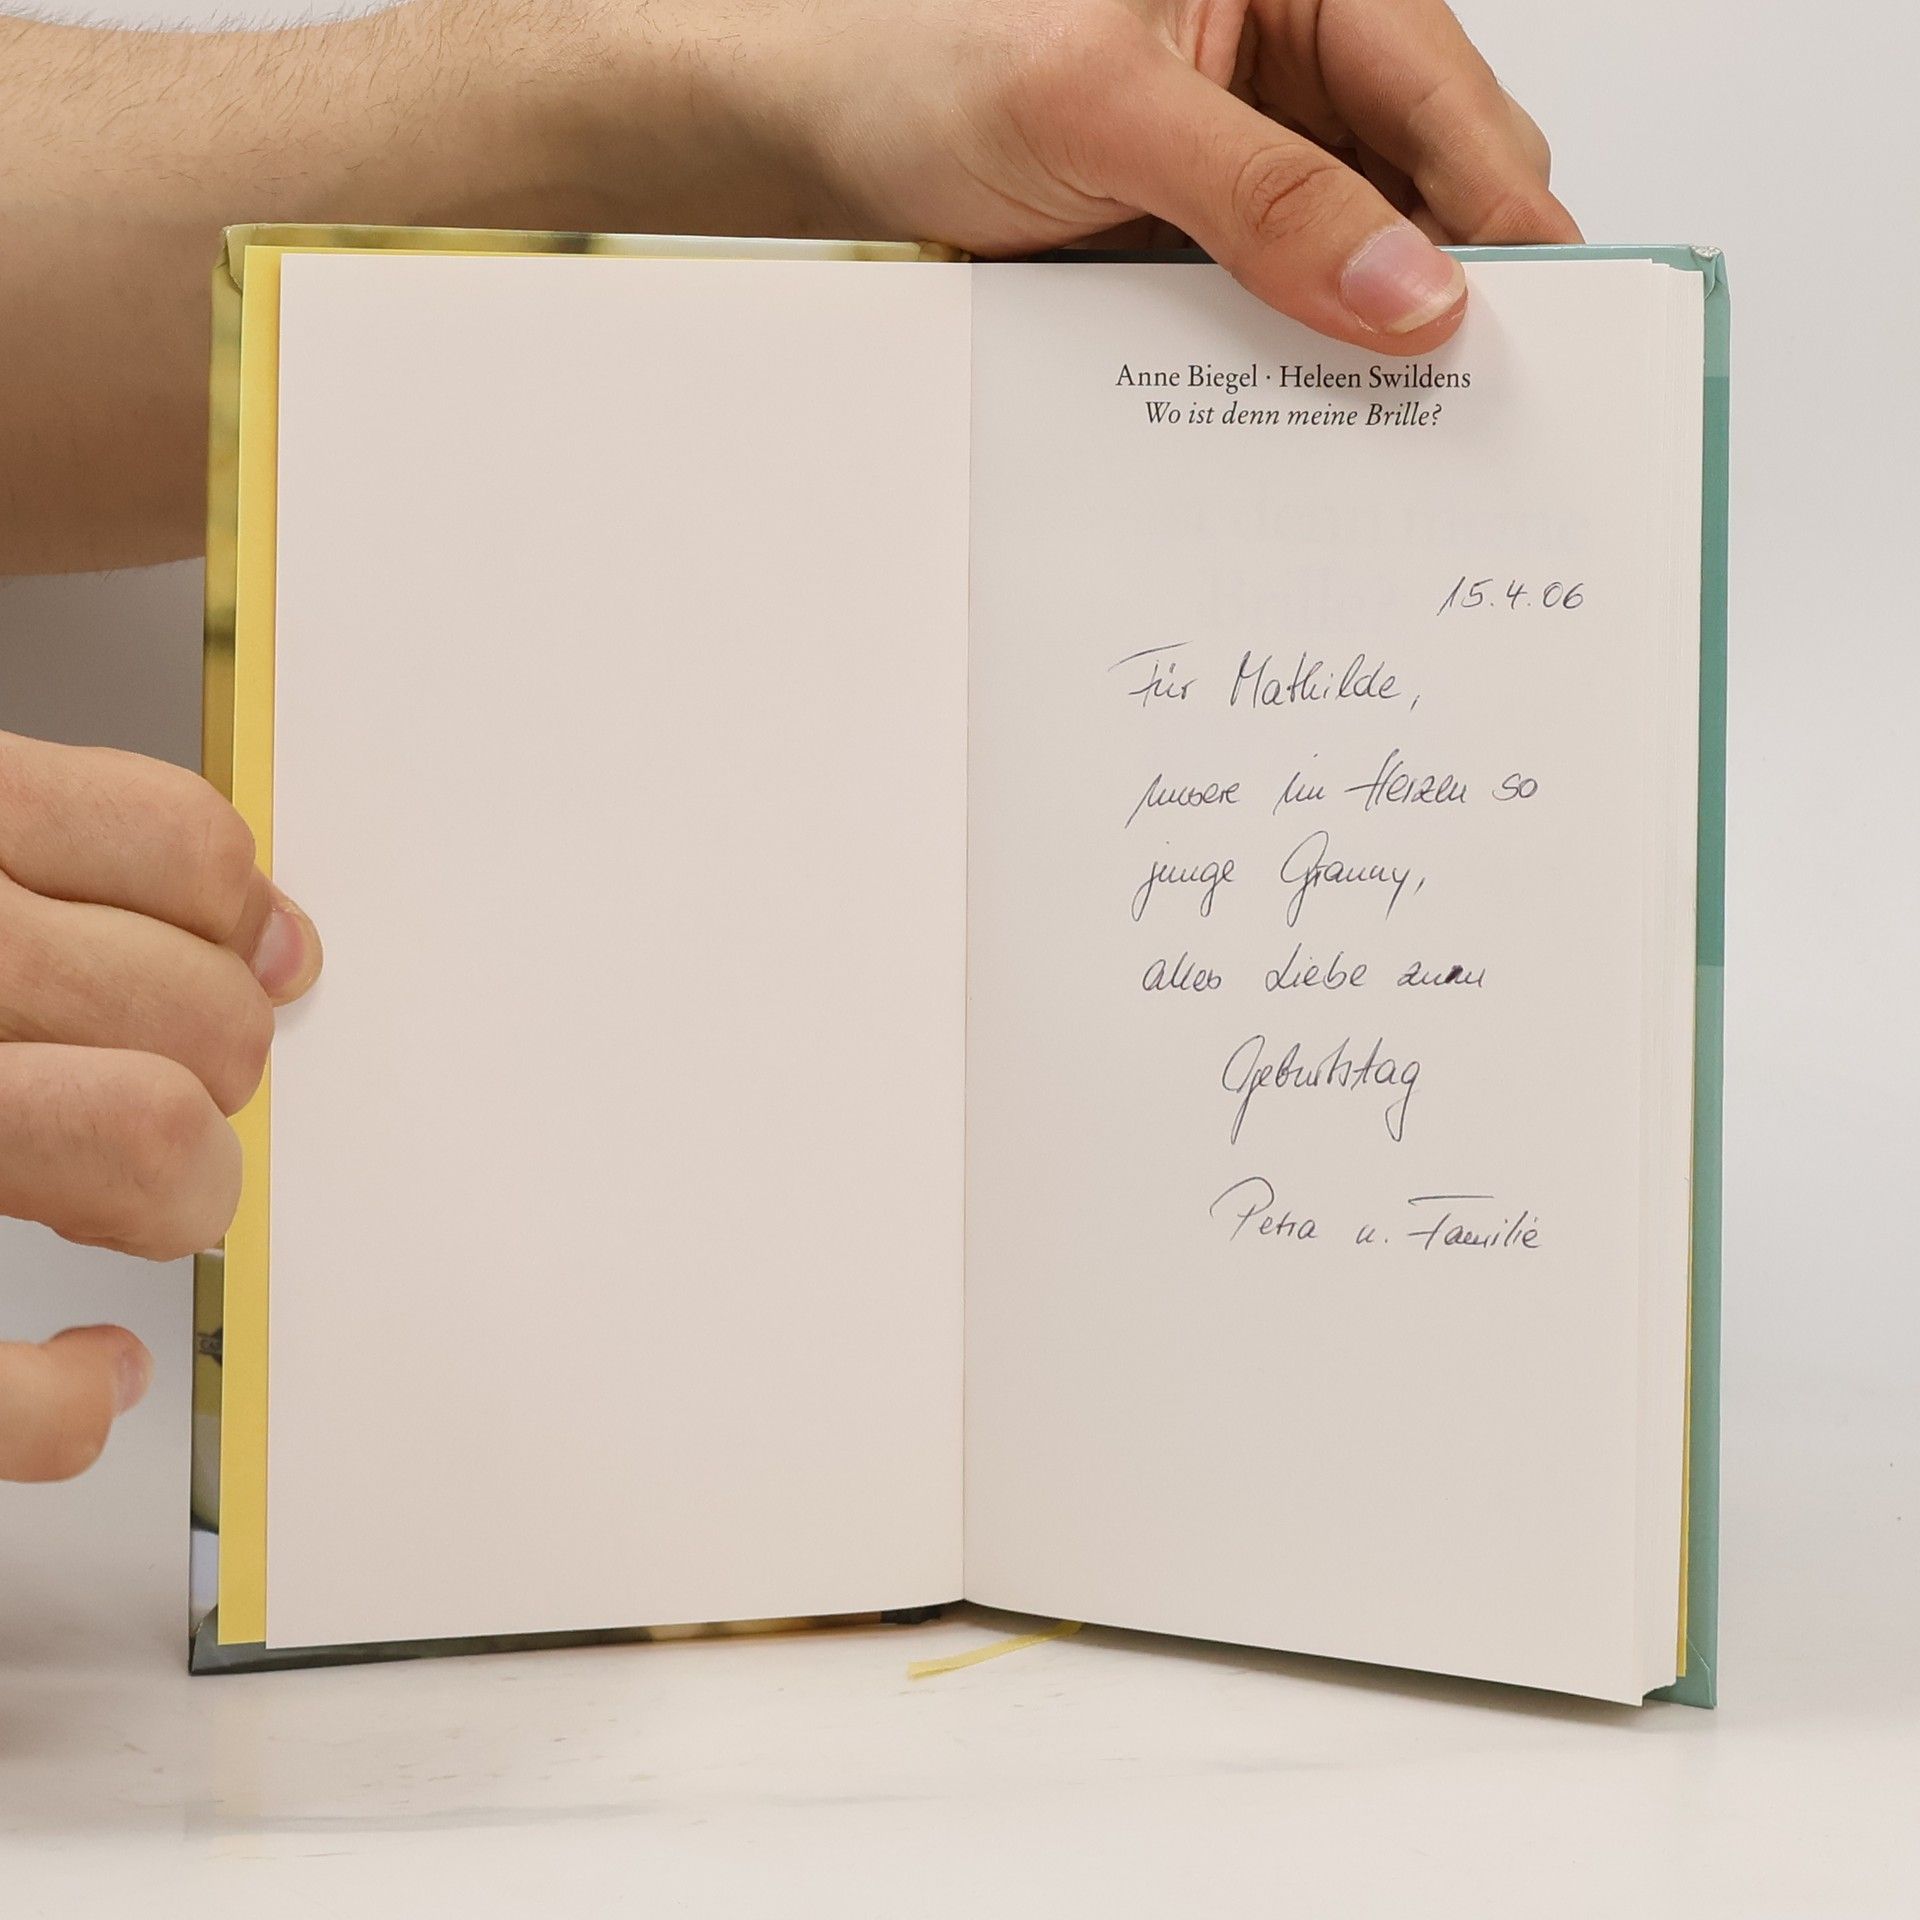 Anne Biegel · Heleen Swildens
Wo ist denn meine Brille?
15.4.06
Für Mathilde,
unsere im Herzen so
junge Granny,
alles Liebe zum
Geburtstag
Petra u. Familie